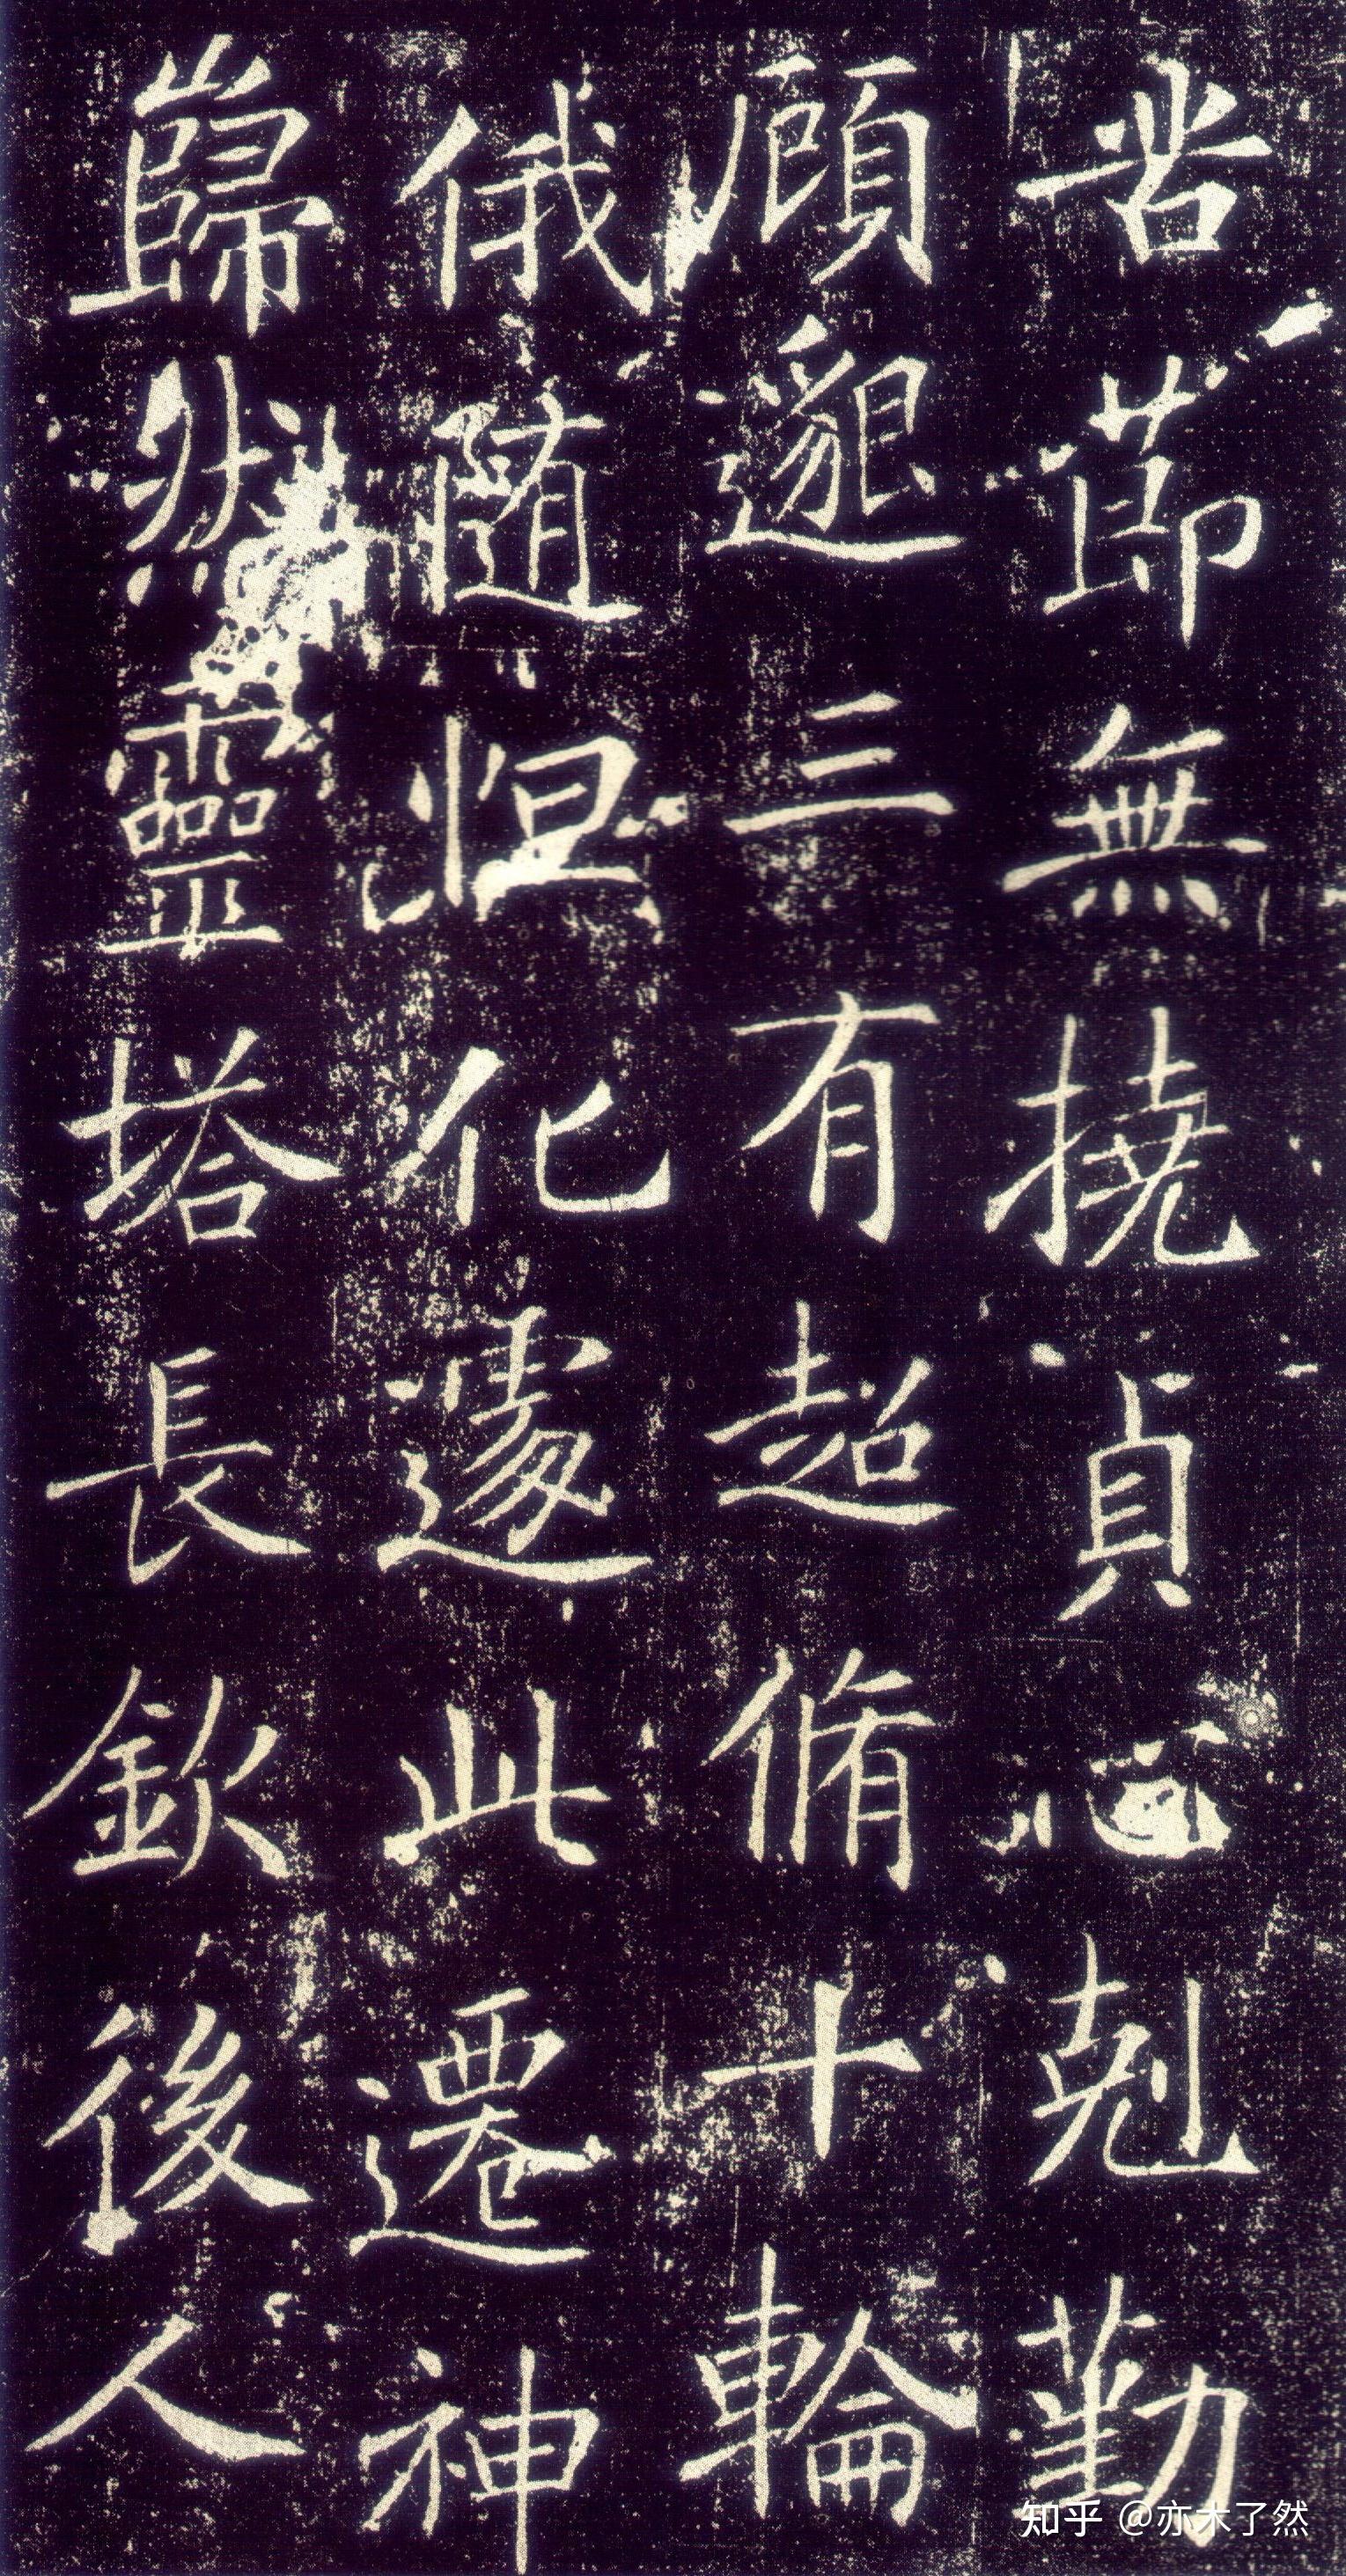 苦節無撓貞心剋勤
顧邈三有超脩十輪
俄隨怛化遽此遷神
巋然靈塔長欽後人
知乎 @亦木了然